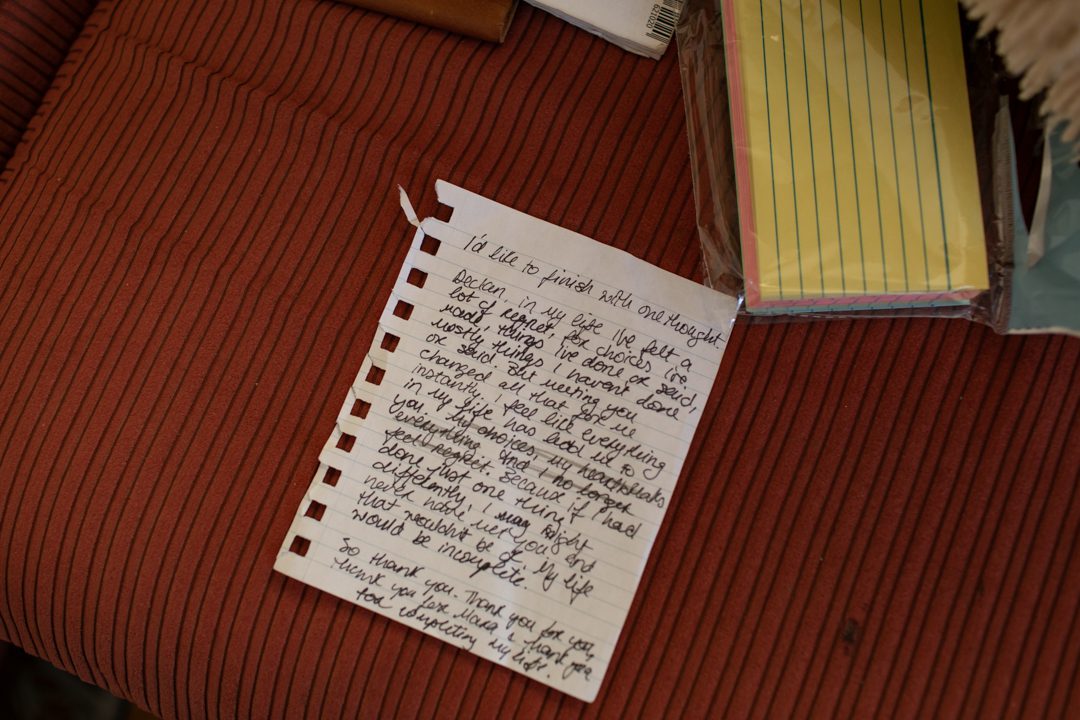 I'd like to finish with one thought.
Declan, in my life I've felt a
lot of regret, for choices I've
made, things I've done or said,
mostly things I haven't done
or said. But meeting you
changed all that for me
instantly. I feel like everything
in my life has lead me to
you. My choices, my heartbreaks
everything. And I no longer
feel regret. Because if I had
done just one thing
differently, I may might
never have met you and
that wouldn't be ok. My life
would be incomplete.
So thank you. Thank you for you,
thank you for Mara, &amp; thank you
for completing my life.
020129